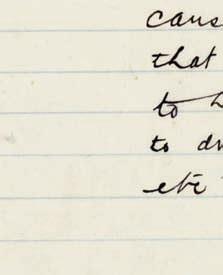 caus
that
to h
to d
etc